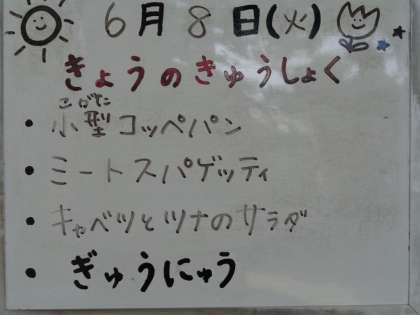 6月8日(火)
きょうのきゅうしょく
こがた
・小型コッペパン
・ミートスパゲッティ
・キャベツとツナのサラダ
・ぎゅうにゅう